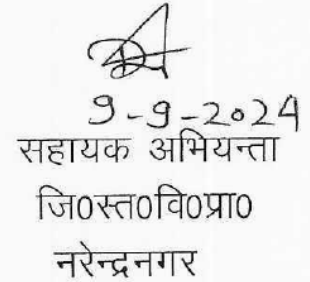 9-9-2024
सहायक अभियन्ता
जि0स्त0वि0प्रा0
नरेन्द्रनगर